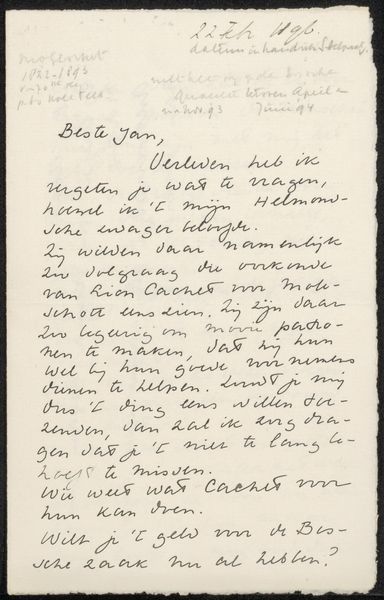 22 Feb 1896.
datum in handschr
1822-1893
Beste Jan,
Verleden heb ik
vergeten je wat te vragen,
hoewel ik 't mijn Helmond-
sche zwager beloofde.
Zij wilden daar namenlijk
zoo dolgraag die oorkonde
van Lion Cachet voor Mole-
schott eens zien. Zij zijn daar
zoo begeerig om mooie patro-
nen te maken, dat wij hun
wel bij hun goede voornemens
dienen te helpen. Zoudt je mij
dus 't ding eens willen toe-
zenden, dan zal ik zorg dra-
gen dat je 't niet te lang be-
hoeft te missen.
Wie weet wat Cachet voor
hun kan doen.
Wilt je 't geld voor de Bos-
sche zaak nu al hebben?